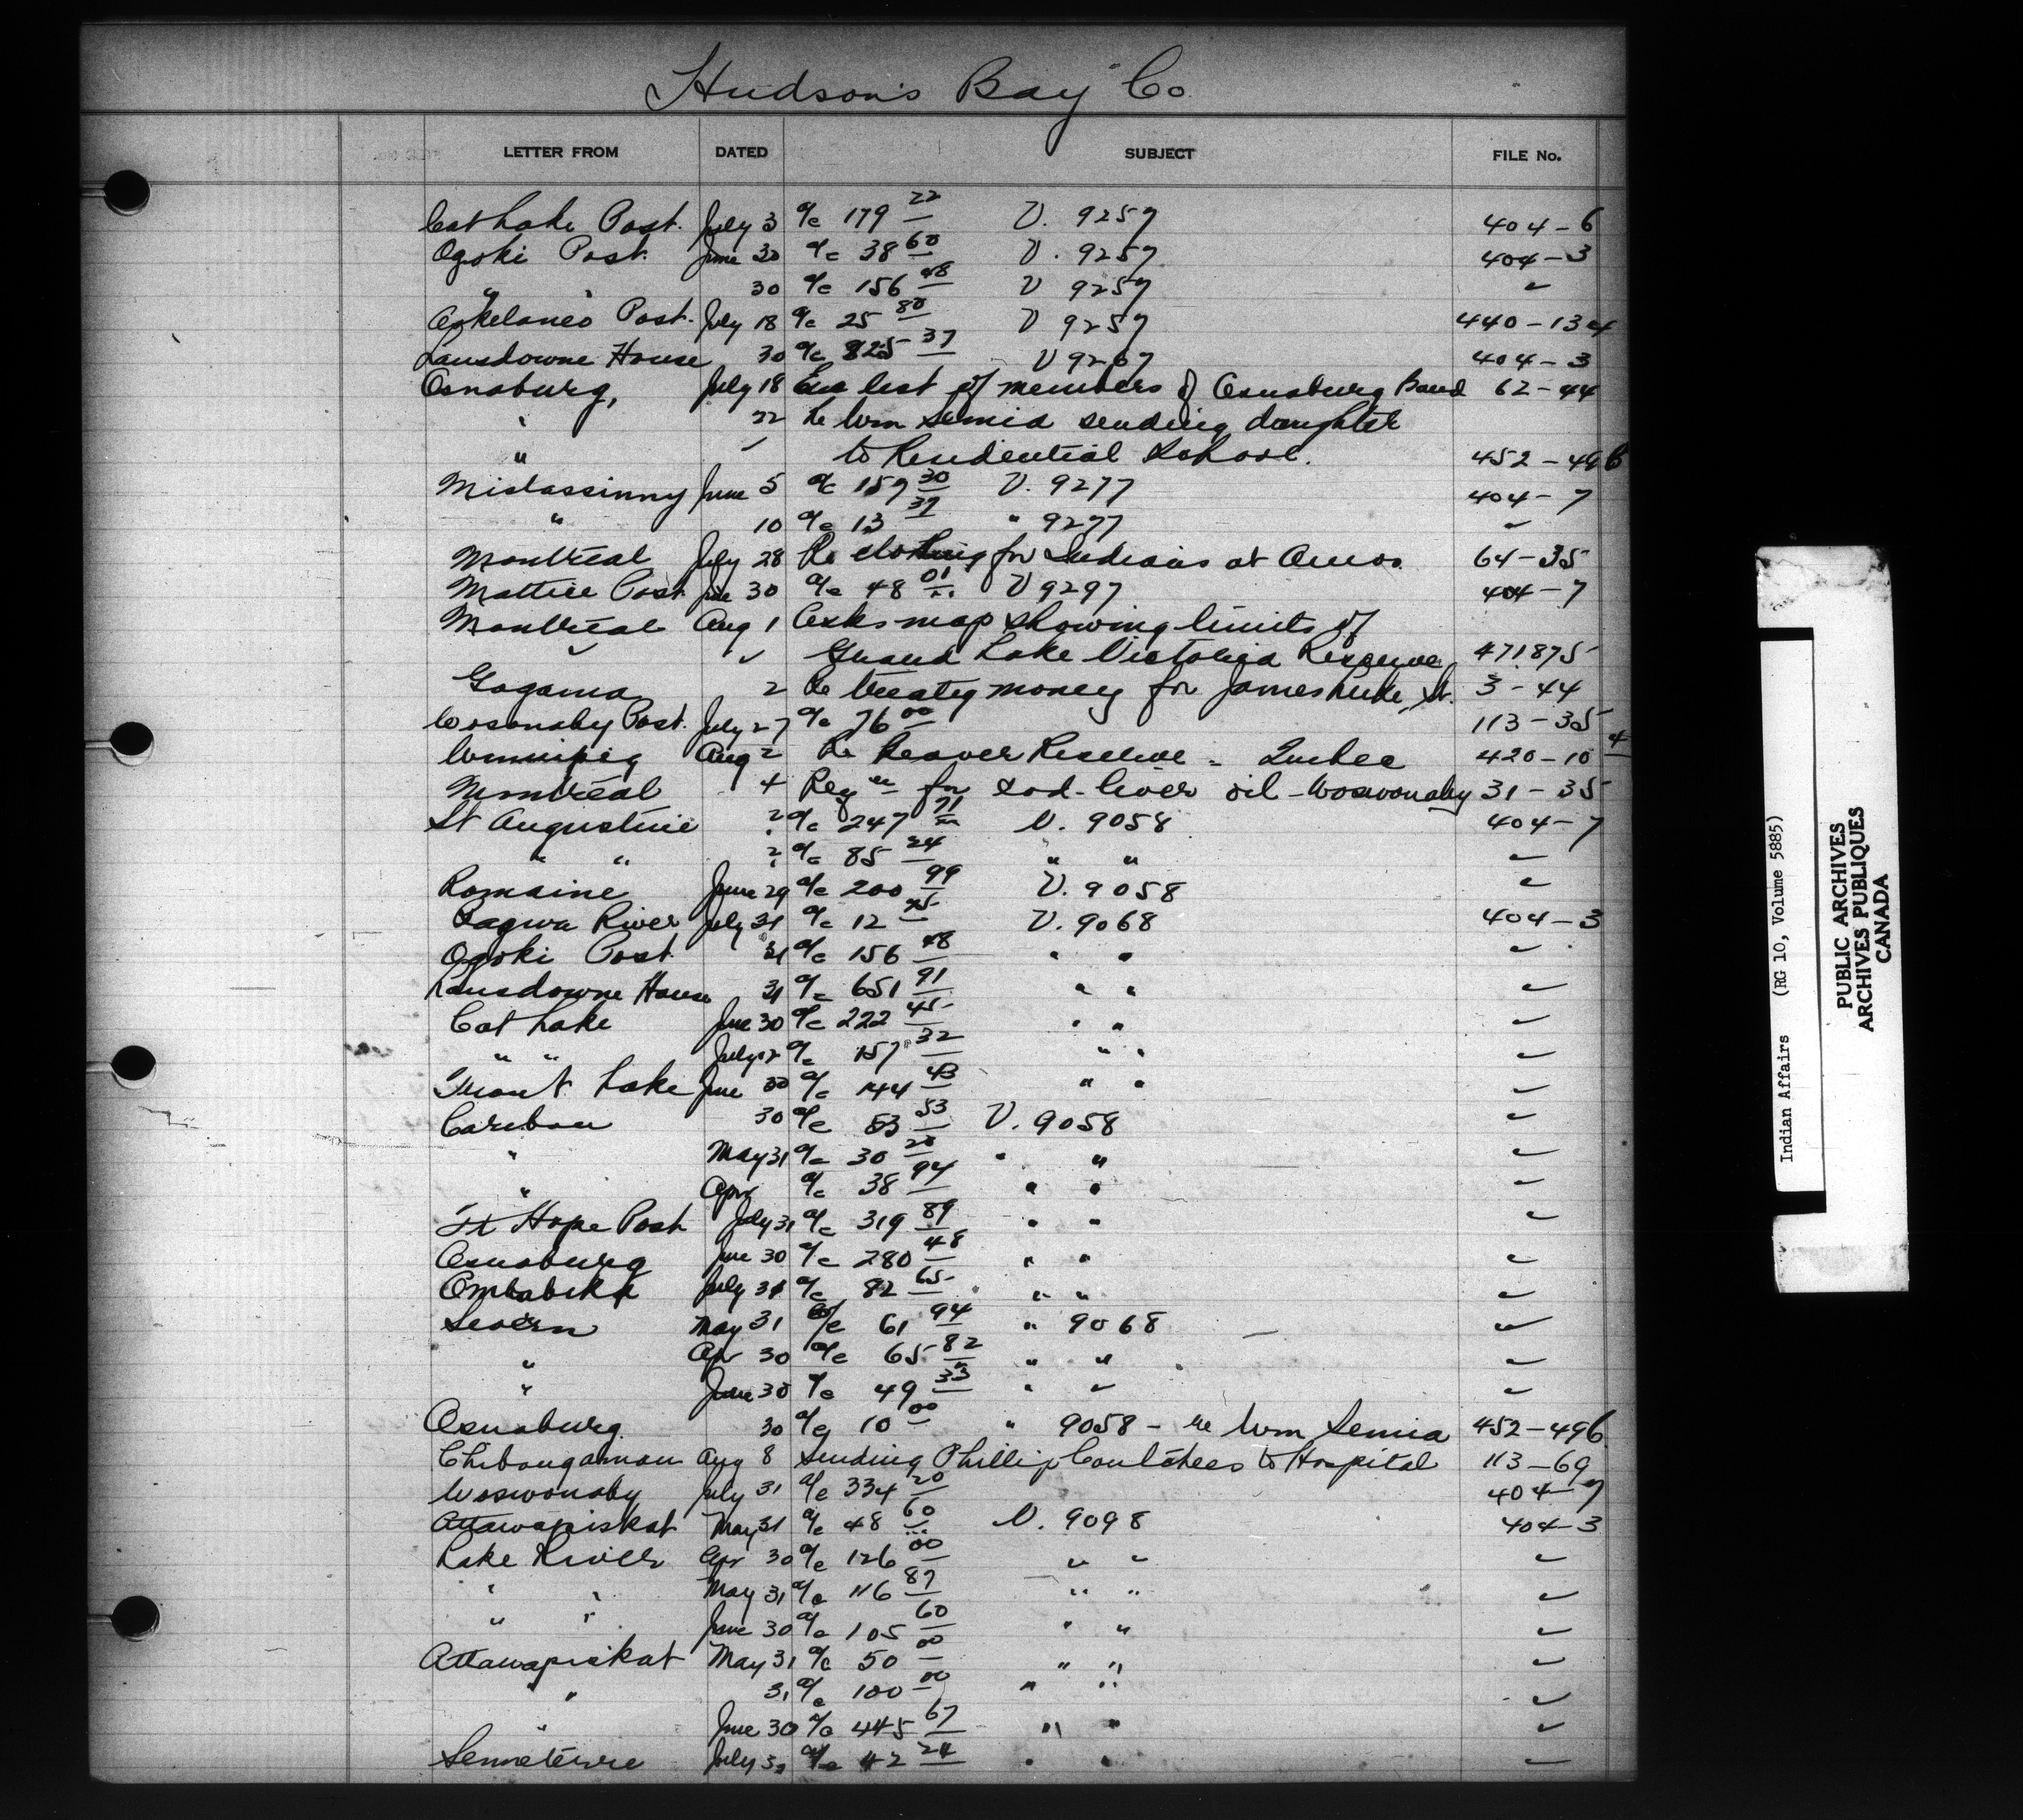 Hudson's Bay Co
LETTER FROM DATED SUBJECT FILE No.
Cat Lake Post. July 3 a/c 179 22 V. 9257 404-6
Ogoki Post. June 30 a/c 38 60 V. 9257 404-3
" " 30 a/c 156 48 V 9257 "
Post. July 18 a/c 25 80 V 9257 440-13
Lansdowne House 30 a/c 825 37 V 9267 404-3
Osnaburg, July 18 Enc list of members of Osnaburg Band 62-44
" 22 Re Wm Semia sending daughter
" " to Residential School. 452-49
Mistassinny June 5 a/c 157 30 V. 9277 404-7
" 10 a/c 13 37 " 9277 "
Montreal July 28 Re clothing for Indians at Amos. 64-35
Mattice Post. June 30 a/c 48 01 V 9297 404-7
Montreal Aug 1 Asks map showing limits of
" " Grand Lake Victoria Reserve 471875
Gogama 2 Re treaty money for James Luke, Sr. 3-44
Woswonaby Post. July 27 a/c 76 00 113-35
Winnipeg Aug 2 Re Beaver Reserve - Quebec 420-10 4
Montreal 4 Reqn for cod-liver oil - Woswonaby 31-35
St Augustine ? a/c 247 71 V. 9058 404-7
" " ? a/c 85 24 " " "
Romaine June 29 a/c 200 99 V. 9058 "
Pagwa River July 31 a/c 12 45 V. 9068 404-3
Ogoki Post 31 a/c 156 48 " " "
Lansdowne House 31 a/c 651 91 " " "
Cat Lake June 30 a/c 222 45 " " "
" " July a/c 157 32 " " "
Trout Lake June 30 a/c 144 43 " " "
Caribou 30 a/c 53 V. 9058 "
" May 31 a/c 30 20 " " "
" Apr a/c 38 94 " " "
Ft Hope Post July 31 a/c 319 89 " " "
Osnaburg June 30 a/c 280 48 " " "
Ombabika July 31 a/c 82 65 " " "
Severn May 31 a/c 61 94 " 9068 "
" Apr 30 a/c 65 82 " " "
" June 30 a/c 49 33 " " "
Osnaburg. 30 a/c 10 00 " 9058 - re Wm Semia 452-496
Chibougamau Aug 8 Sending Phillip to Hospital 113-69
Woswonaby July 31 a/c 334 20 404-7
Attawapiskat May 31 a/c 48 60 V. 9098 404-3
Lake River Apr 30 a/c 126 00 " " "
" " May 31 a/c 116 87 " " "
" " June 30 a/c 105 60 " " "
Attawapiskat May 31 a/c 50 00 " " "
" " 31 a/c 100 00 " " "
" June 30 a/c 445 67 " " "
Senneterre July 31 a/c 42 24 " " "
Indian Affairs (RG 10, Volume 5885)
PUBLIC ARCHIVES
ARCHIVES PUBLIQUES
CANADA